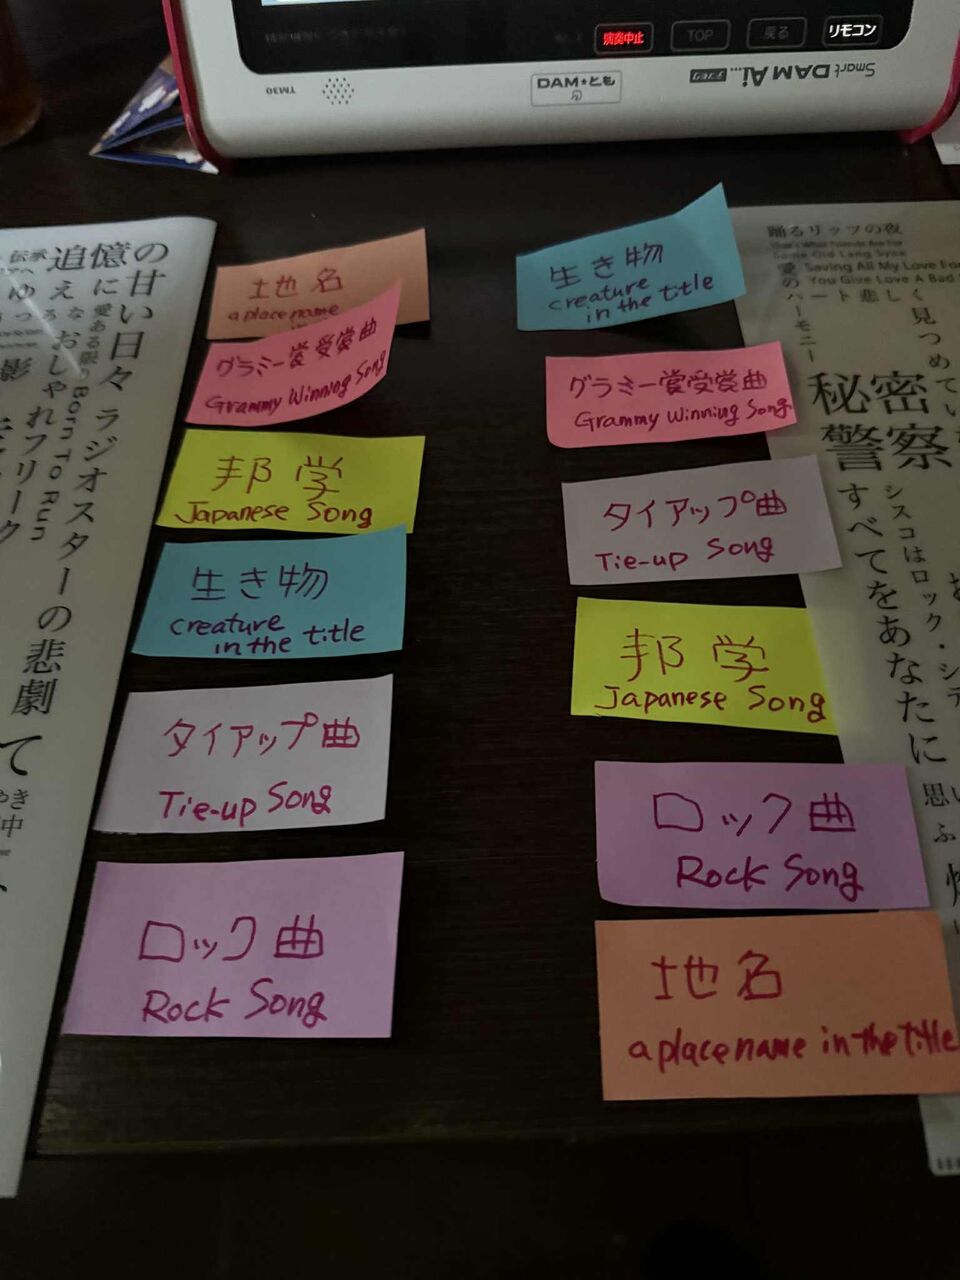 演奏中止
TOP
戻る
リモコン
TM30
DAM★とも
Smart DAM Ai
地名
a place name
グラミー賞受賞曲
Grammy Winning Song
邦学
Japanese Song
生き物
creature
in the title
タイアップ曲
Tie-up Song
ロック曲
Rock Song
生き物
creature
in the title
グラミー賞受賞曲
Grammy Winning Song
タイアップ曲
Tie-up Song
邦学
Japanese Song
ロック曲
Rock Song
地名
a place name in the title
追憶の
甘い日々
ラジオスターの悲劇
愛ある限り
Born To Run
おしゃれフリーク
影
踊るリッツの夜
That's What Friends Are For
Some Old Lang Syne
Saving All My Love For
You Give Love A Bad
愛のハーモニー
ハート悲しく
見つめてい
秘密
警察
すべてをあなたに
シスコはロック・シテ
思い